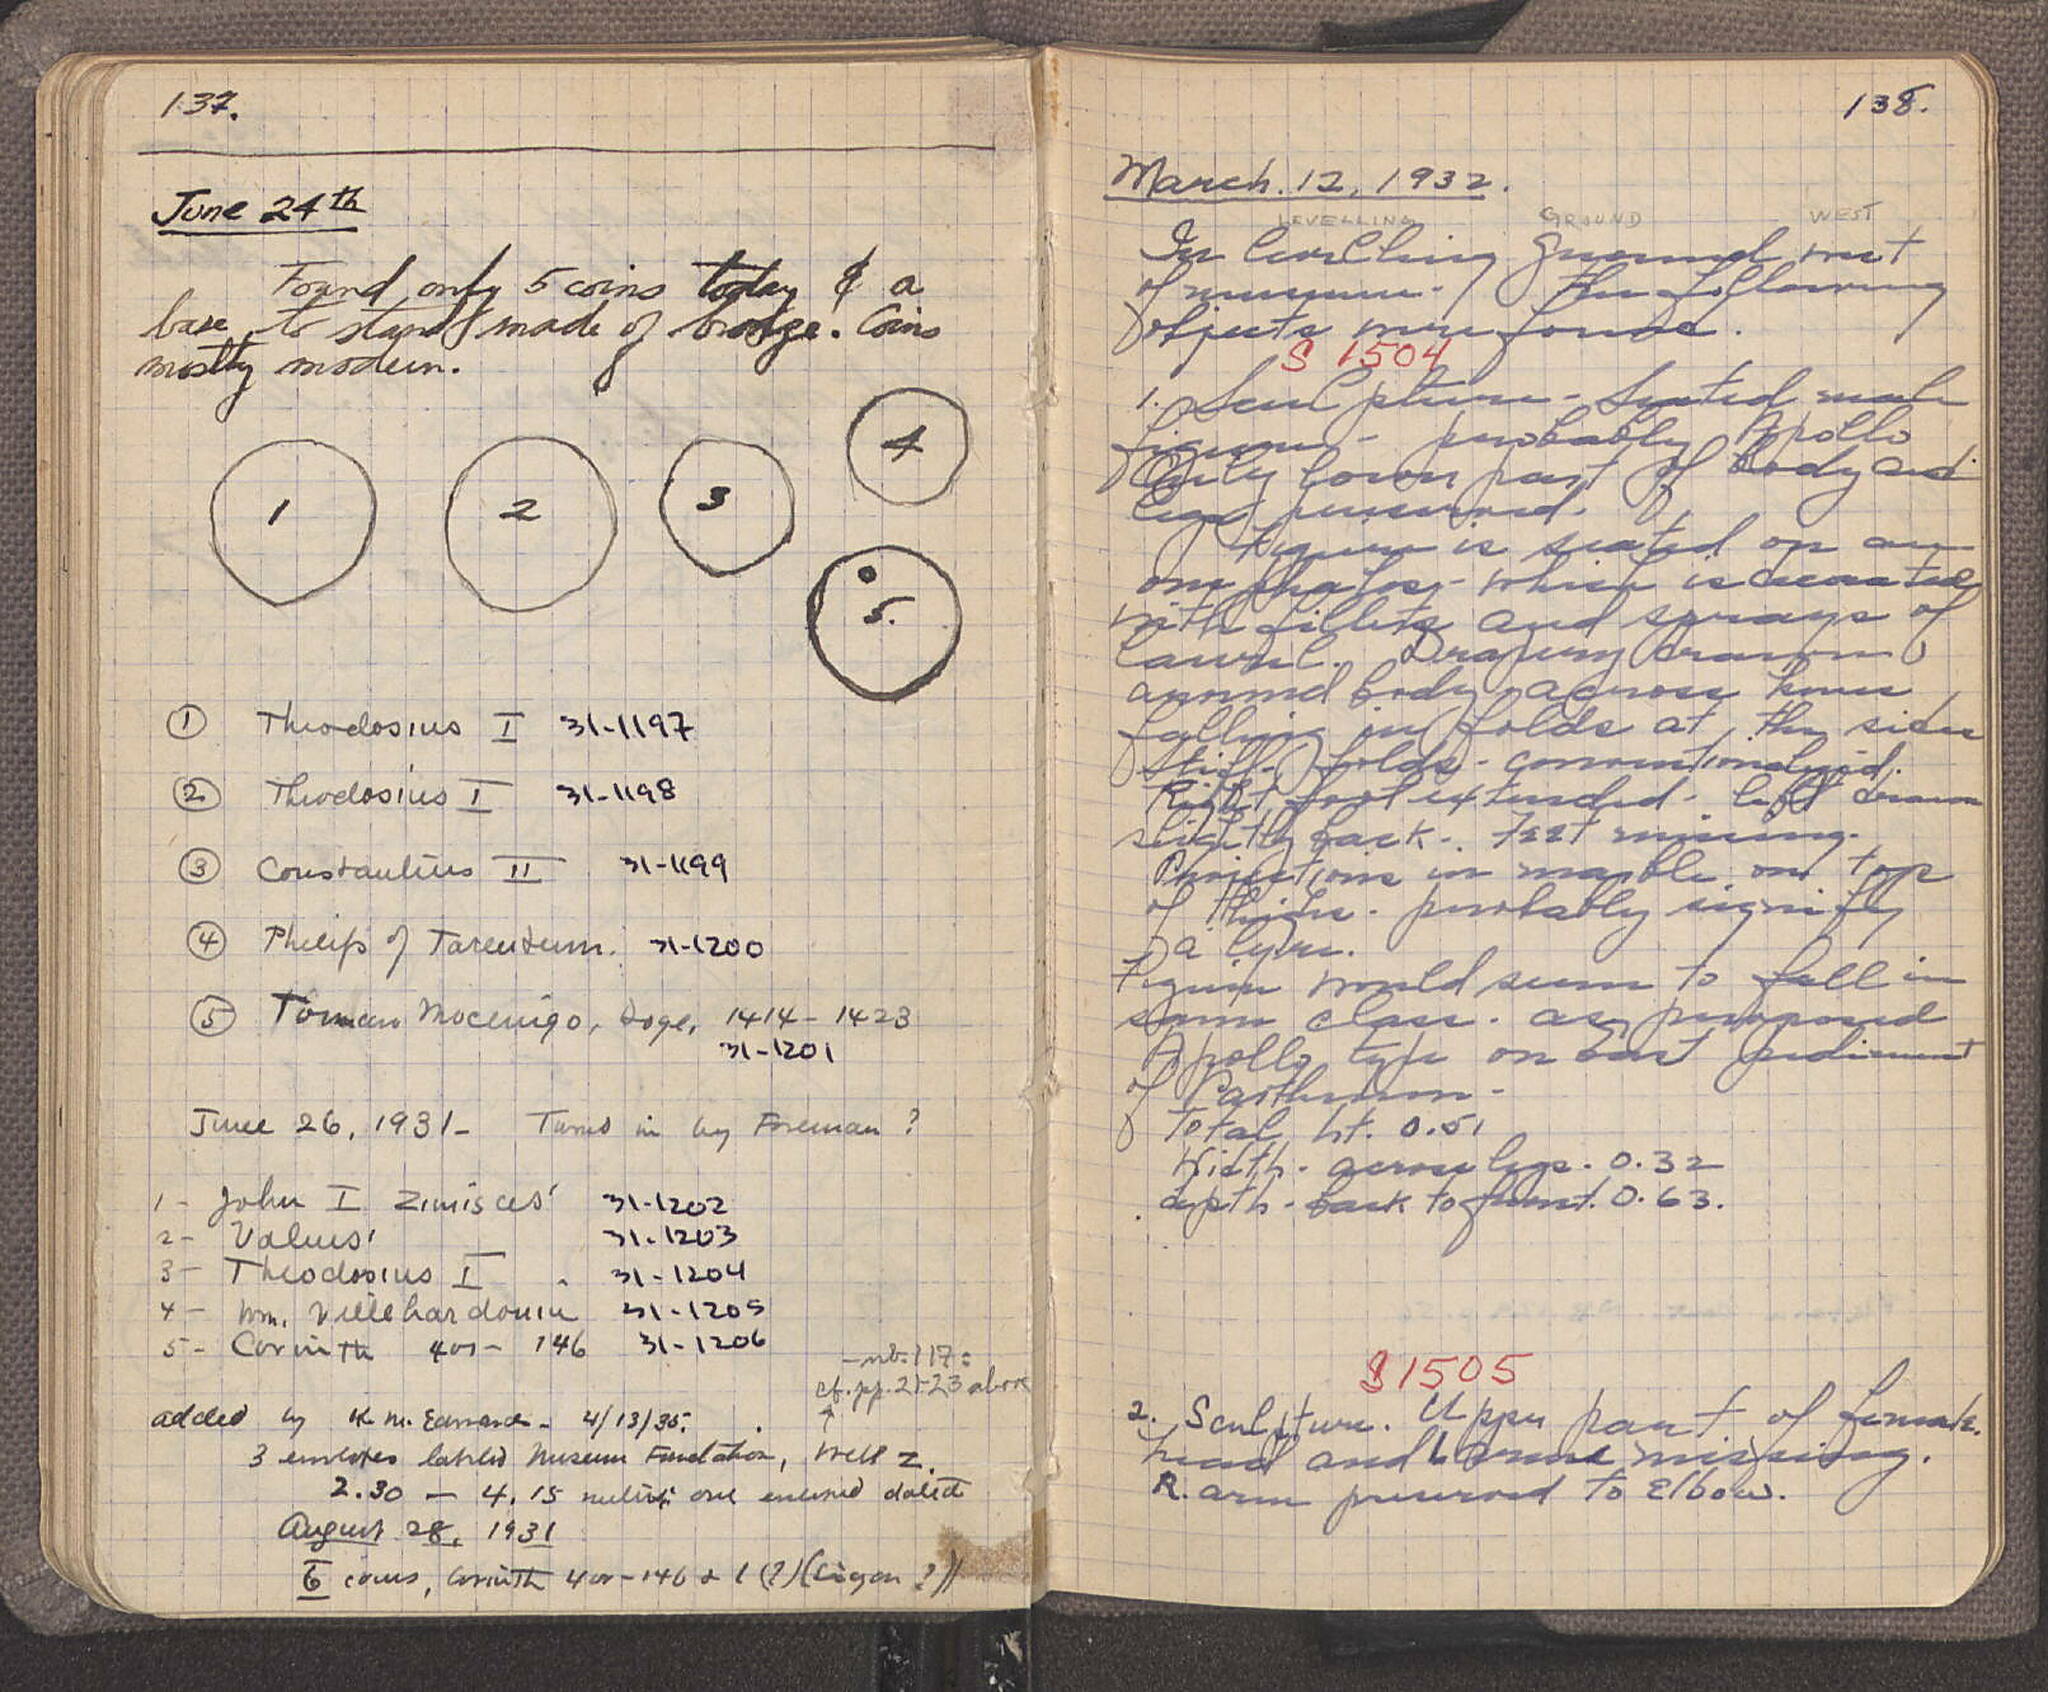 137.
June 24th
Found only 5 coins today & a
base to stand made of bronze. Coins
mostly modern.
1
2
3
4
5.
① Theodosius I 31-1197
② Theodosius I 31-1198
③ Constantius II 31-1199
④ Philip of Tarentum. 31-1200
⑤ Mocenigo, Doge, 1414-1423
31-1201
June 26, 1931- Turned in by Foreman?
1- John I Zimisces 31-1202
2- 31-1203
3- Theodosius I 31-1204
4- Wm. Villehardouin 31-1205
5- Corinth 400- 146 31-1206
-nb. 117:
cf. pp. 21-23 above
added by K. M. Edwards- 4/13/35.
3 envelopes labeled Museum Foundation, Well Z.
2.30 - 4.15 meters; one envelope dated
August 28, 1931
6 coins, Corinth 400-146 & 1 (?) (Sicyon?)
138.
March. 12, 1932.
LEVELLING GROUND WEST
In levelling ground west
of museum. the following
objects were found.
S 1504
1. Sculpture - Seated male
figure - probably Apollo
Only lower part of body and
legs preserved.
Figure is seated on an
omphalos - which is decorated
with fillets and sprays of
laurel. Drapery drawn
around body across knees
falling in folds at the sides
Stiff folds - conventionalized.
Right foot extended - left drawn
slightly back. Feet missing.
Projections in marble on top
of thighs - probably signify
a lyre.
Figure would seem to fall in
same class. as proposed
Apollo type on East pediment
of Parthenon -
Total ht. 0.51
Width - across legs. 0.32
depth - back to front. 0.63.
S 1505
2. Sculpture. Upper part of female.
head and L arm missing.
R. arm preserved to Elbow.